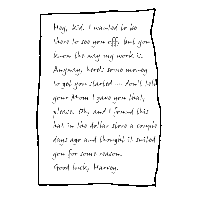 Hey, kid. I wanted to be
there to see you off, but you
know the way my work is.
Anyway, here's some money
to get you started -- don't tell
your Mom I gave you that,
please. Oh, and I found this
hat in the dollar store a couple
days ago and thought it suited
you for some reason.
Good luck, Harvey.